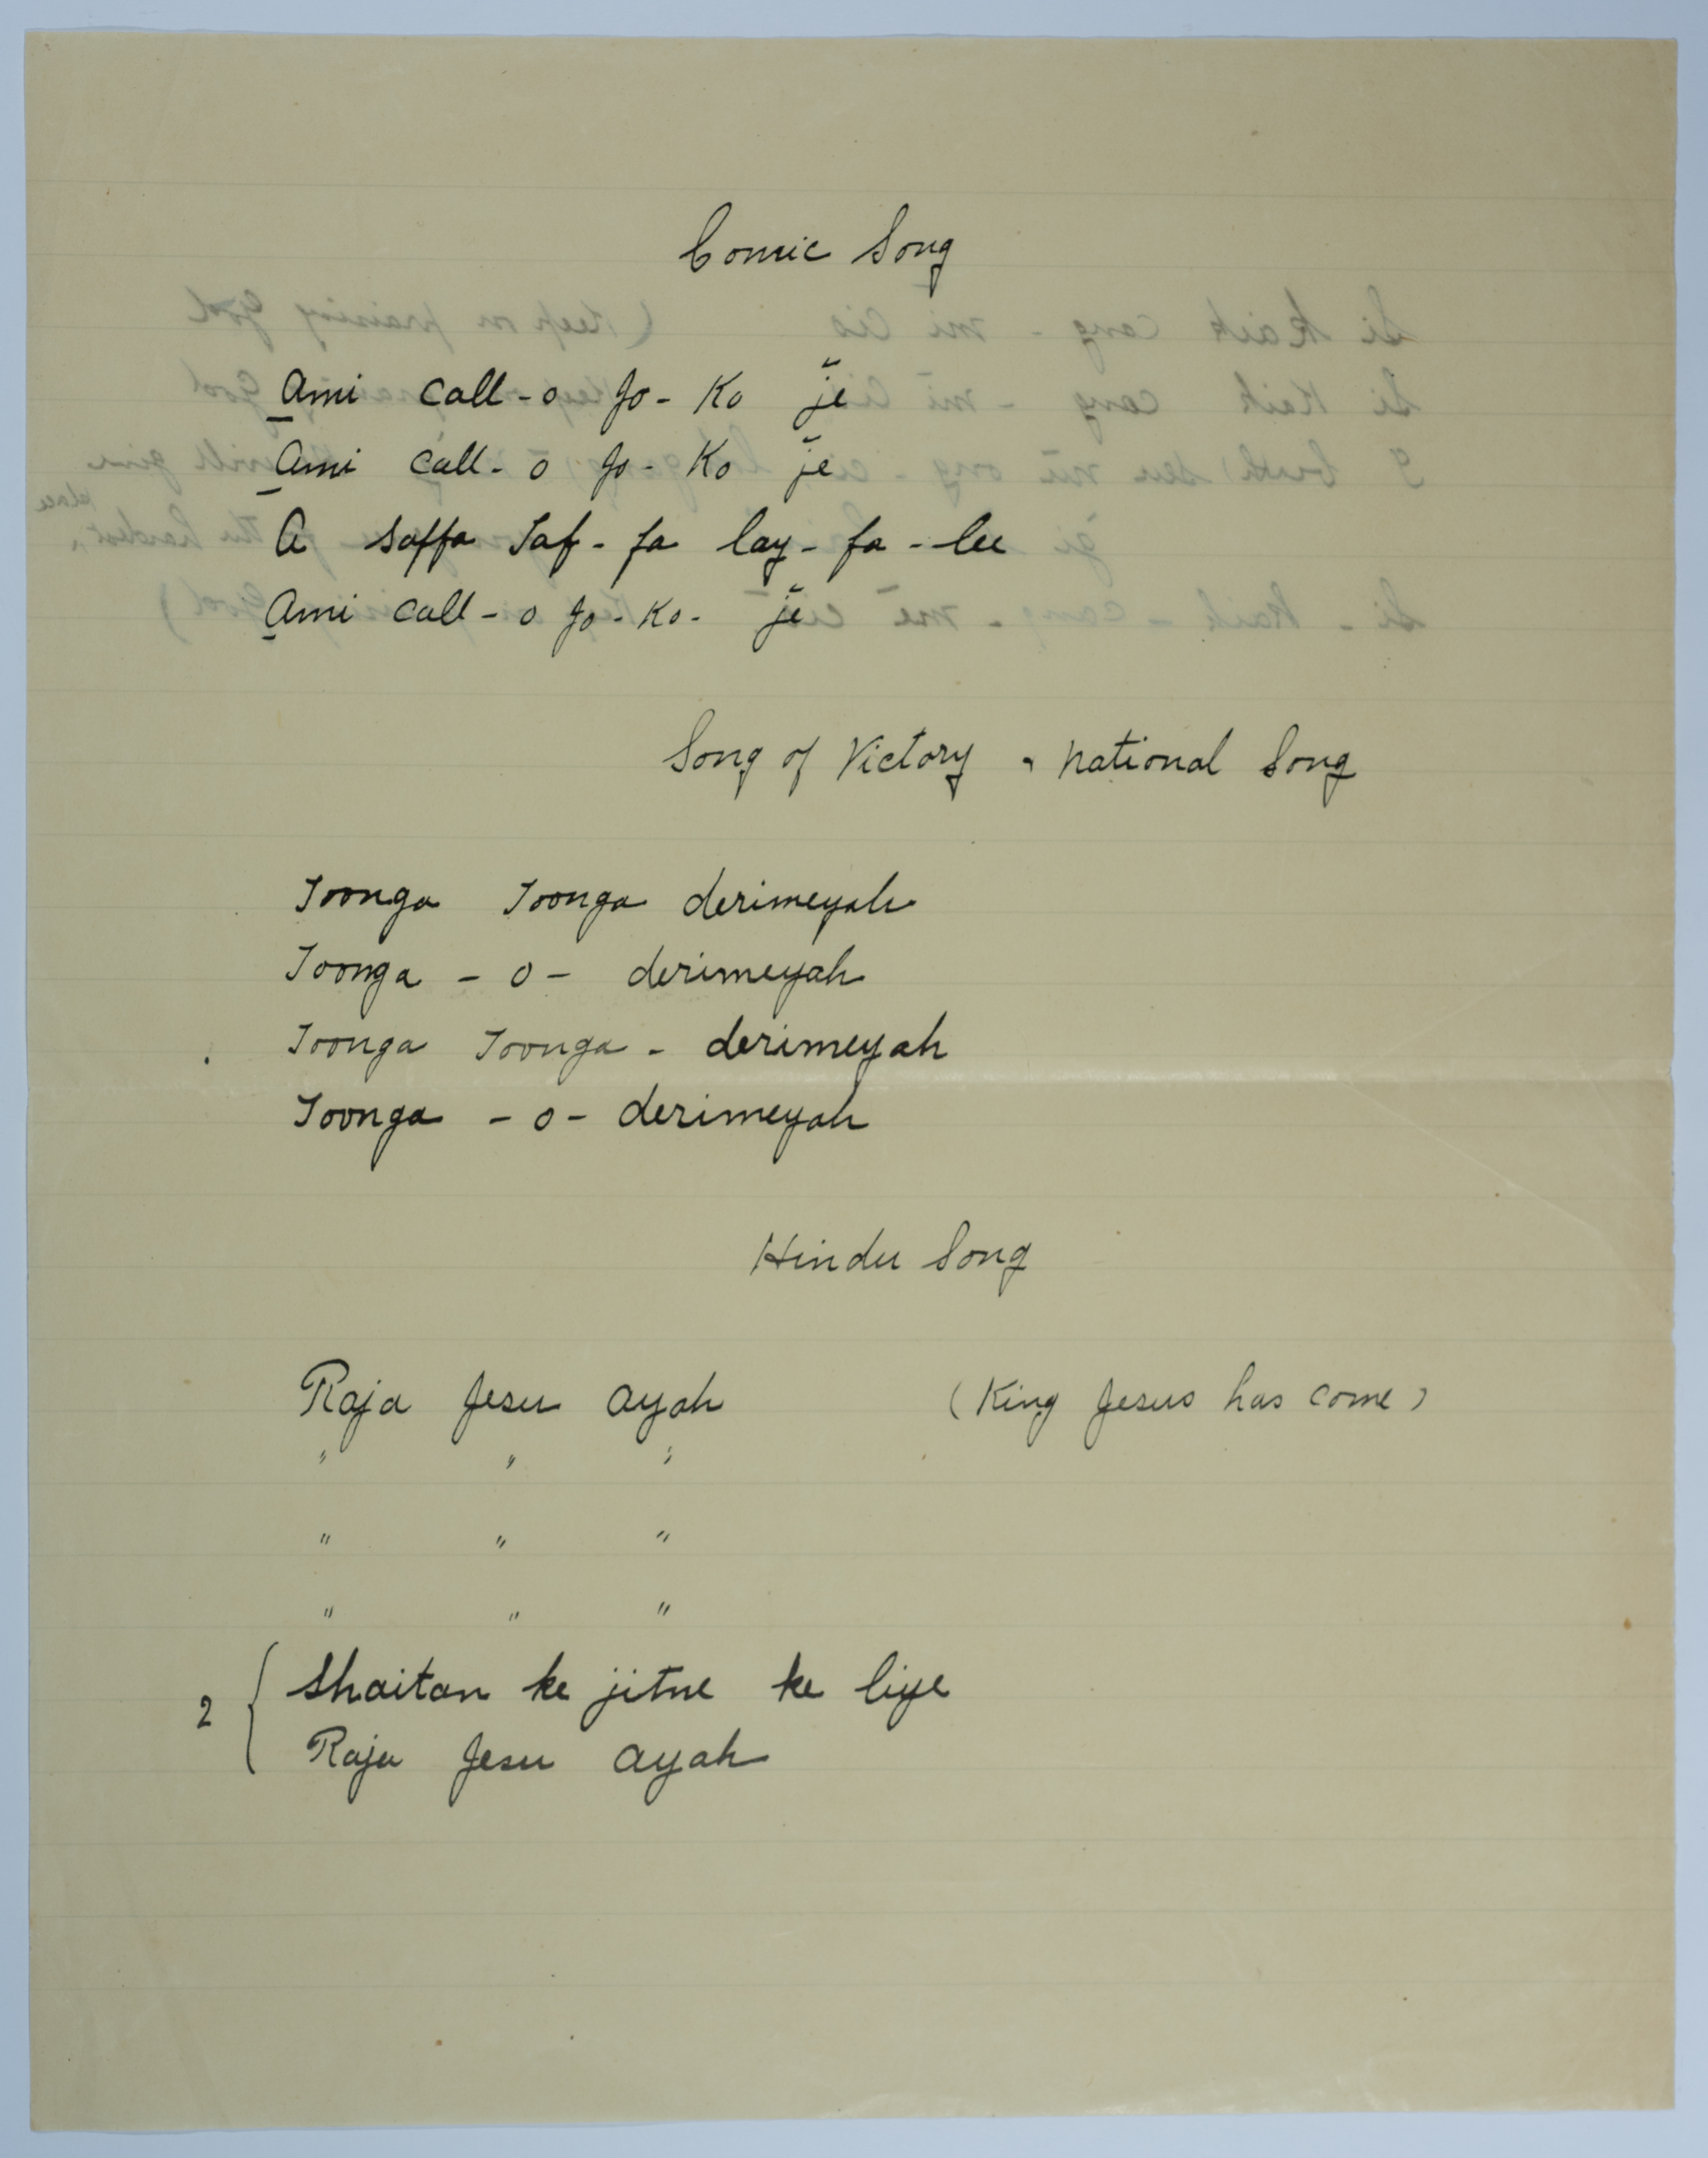 Comic Song
Ami call - o Jo - Ko jē
Ami call - o Jo - Ko jē
A saffa Taf - fa lay - fa - lee
Ami call - o Jo - Ko - jē
Song of Victory - National Song
Toonga Toonga derimeyah
Toonga - o - derimeyah
Toonga Toonga - derimeyah
Toonga - o - derimeyah
Hindu Song
Raja Jesu ayah (King Jesus has come)
" " "
" " "
" " "
2 { Shaitan ke jitne ke liye
Raja Jesu ayah